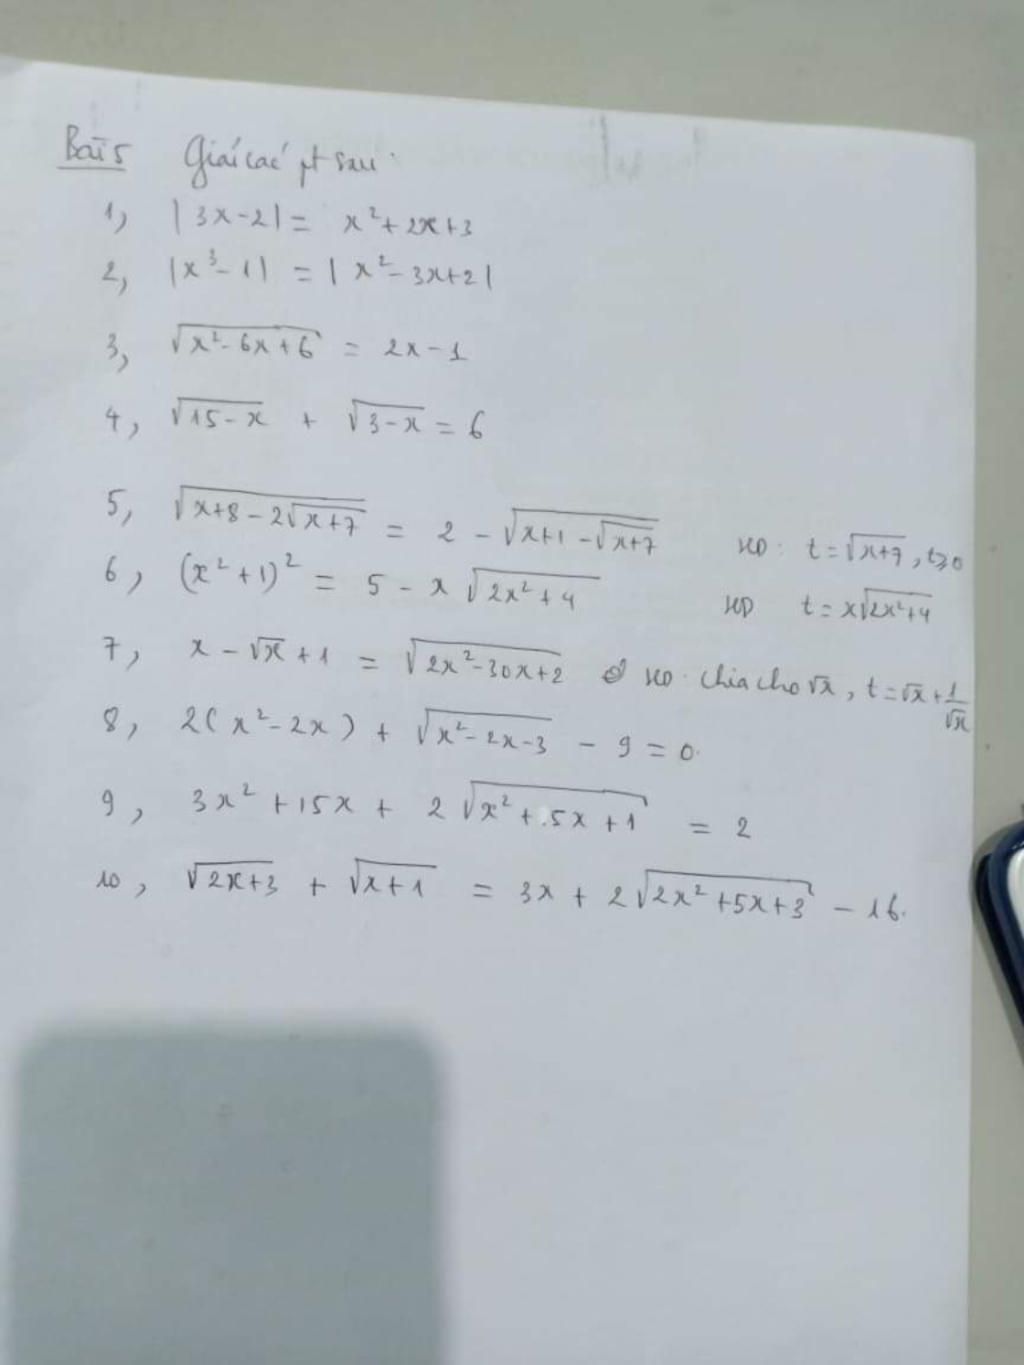 Bài 5 Giải các pt sau:
1, |3x-2| = x²+2x+3
2, |x³-1| = |x²-3x+2|
3, √(x²-6x+6) = 2x-1
4, √(15-x) + √(3-x) = 6
5, √(x+8-2√(x+7)) = 2 - √(x+1-√(x+7)) HD: t=√(x+7), t≥0
6, (x²+1)² = 5 - x√(2x²+4) HD t = x√(2x²+4)
7, x-√x+1 = √(2x²-30x+2) HD: chia cho √x, t=√x+1/√x
8, 2(x²-2x) + √(x²-2x-3) - 9 = 0.
9, 3x²+15x + 2√(x²+5x+1) = 2
10, √(2x+3) + √(x+1) = 3x + 2√(2x²+5x+3) - 16.